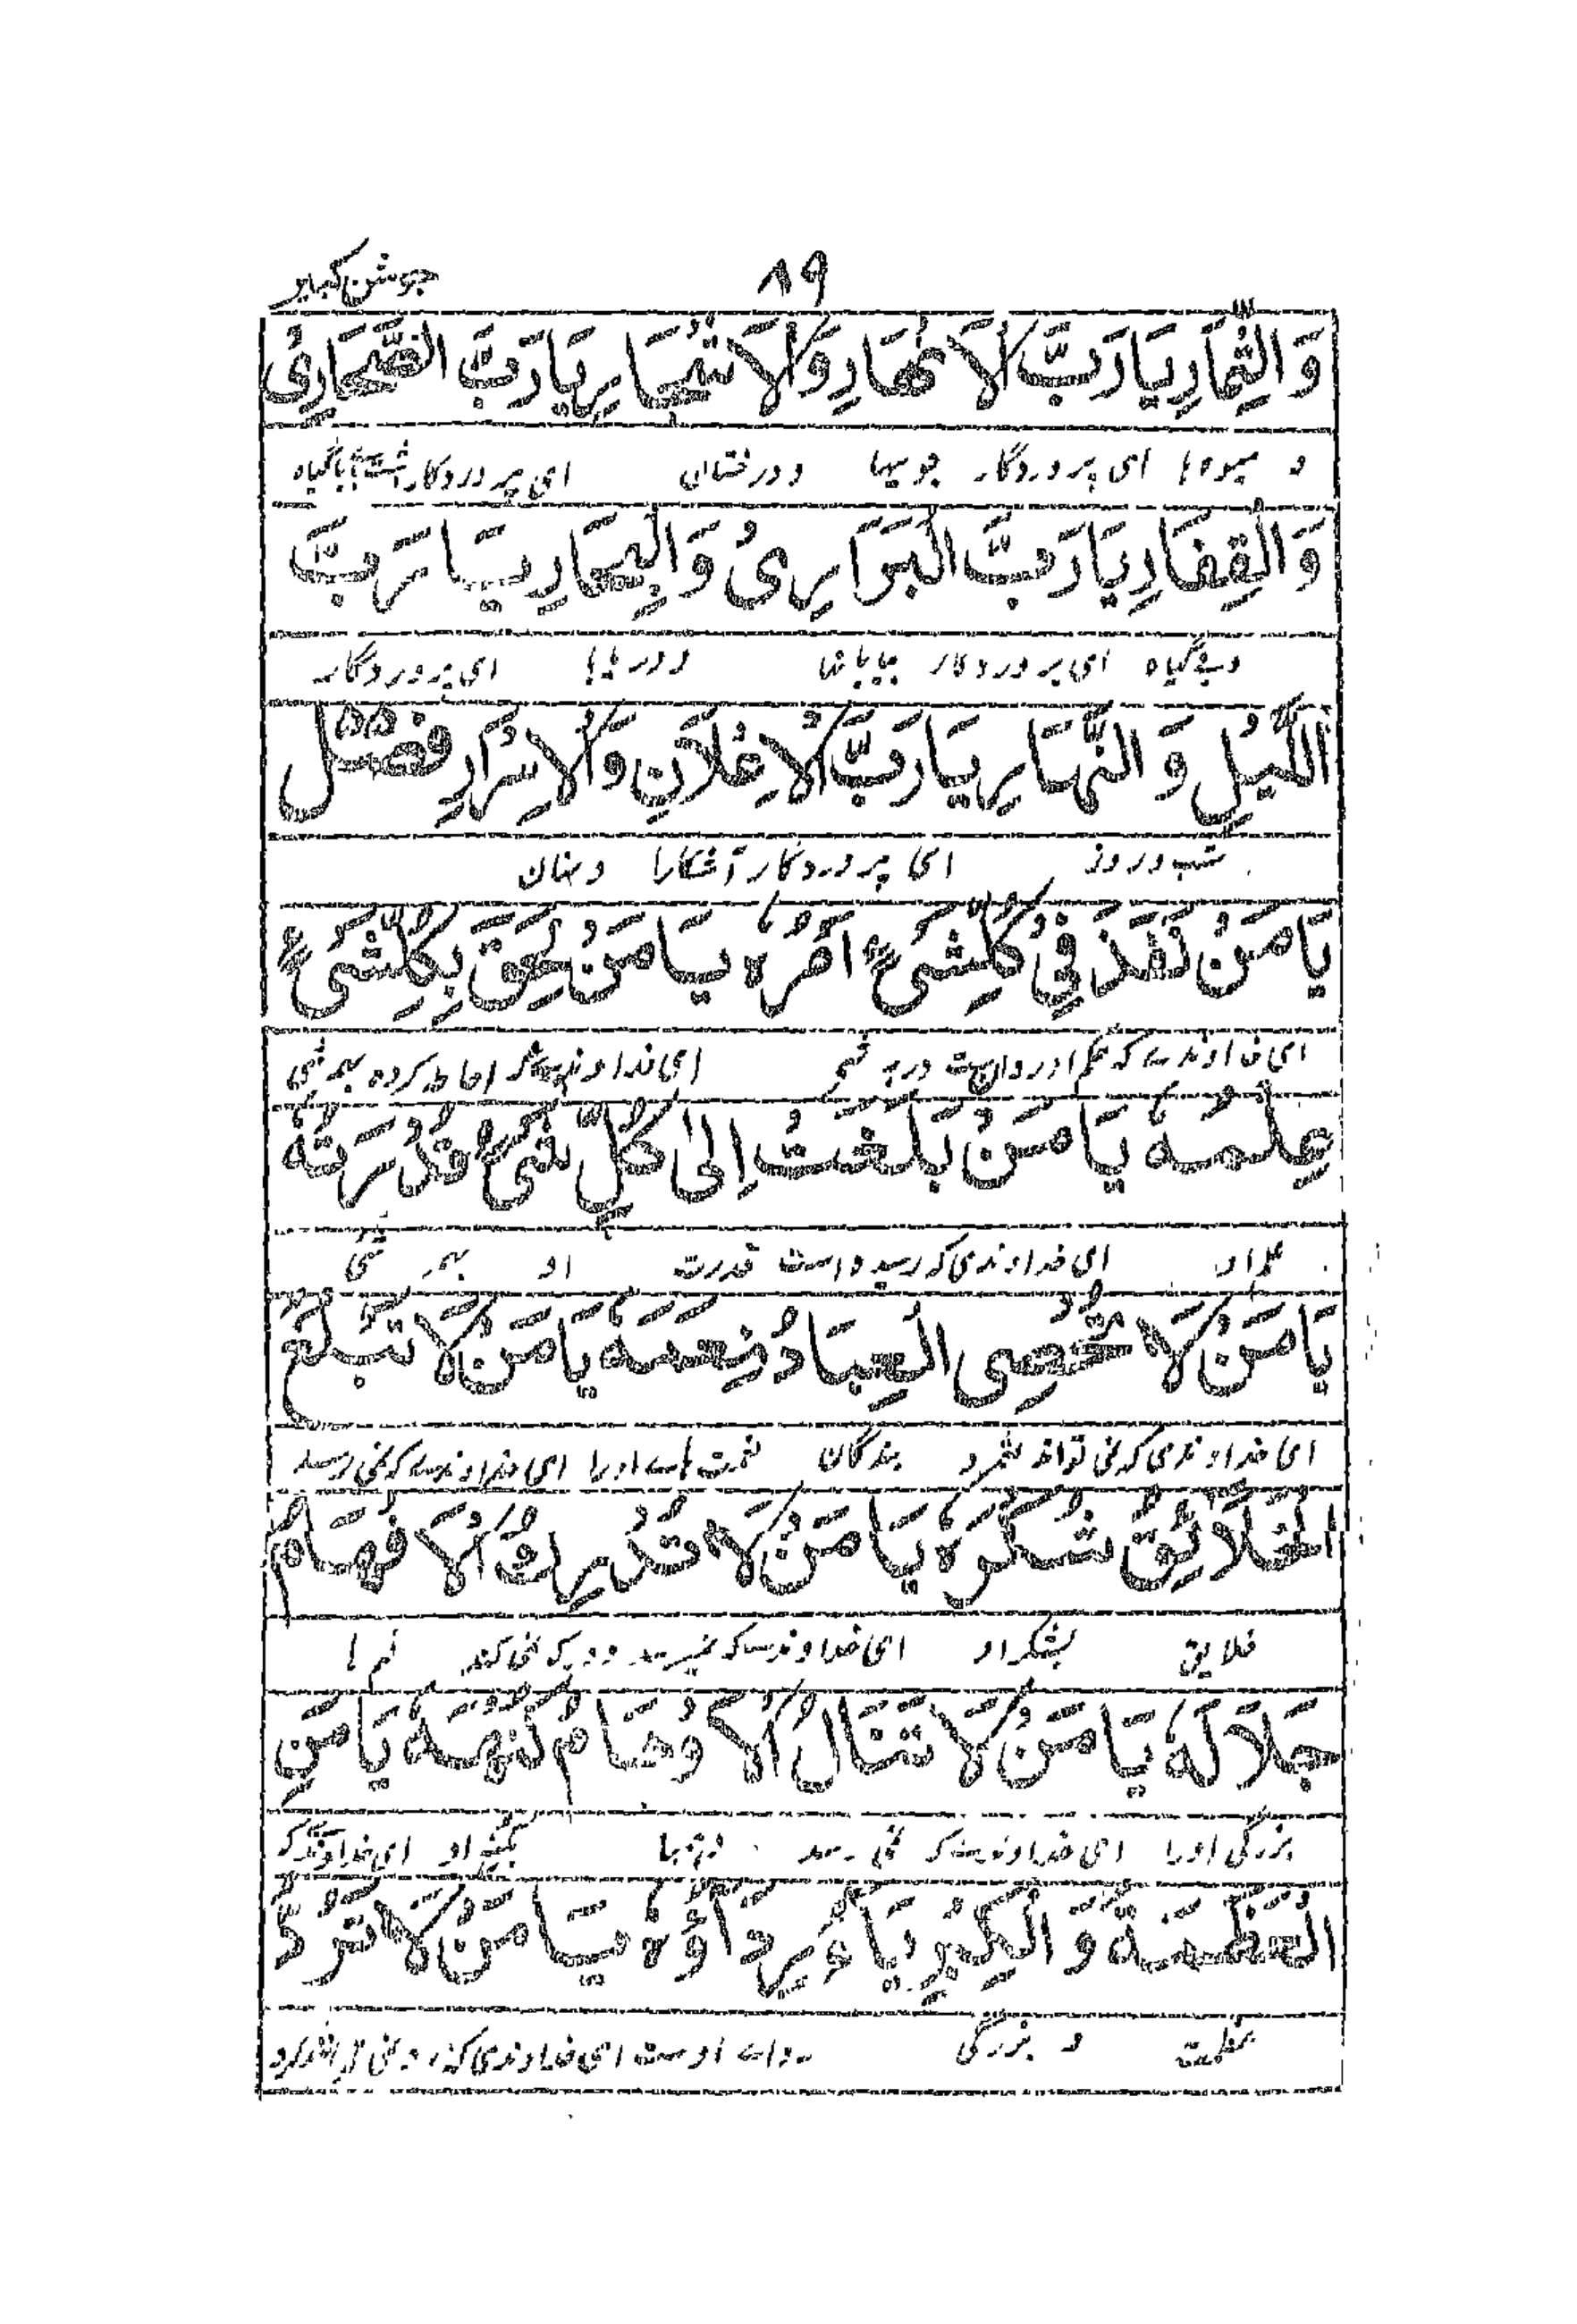 ۸۹
جوشن کبیر
وَالثِّمَارِ يَا رَبَّ الْاَنْهَارِ وَالْاَشْجَارِ يَا رَبَّ الصَّحَارِىْ
و میوه ها ای پروردگار جویها و درختان ای پروردگار
وَالْقِفَارِ يَا رَبَّ الْبَرَارِىْ وَالْبِحَارِ يَا رَبَّ
وبےگیاه ای پروردگار بیابانها ودریاها ای پروردگار
اللَّيْلِ وَ النَّهَارِ يَا رَبَّ الْاِعْلَانِ وَالْاِسْرَارِ فصل ۵۵
شب و روز ای پروردگار آشکارا و نهان
يَا مَنْ نَفَذَ فِىْ كُلِّ شَىْءٍ اَمْرُهٗ يَا مَنْ لَحِقَ بِكُلِّ شَىْءٍ
ای خداوندے که حکم او روان است در ای خداوندے احاطه کرده بهر شی
عِلْمُهٗ يَا مَنْ بَلَغَتْ اِلٰى كُلِّ شَىْءٍ قُدْرَتُهٗ
علم او ای خداوندی که رسیده است قدرت او بهر شی
يَا مَنْ لَا تُحْصِى الْعِبَادُ نِعَمَهٗ يَا مَنْ لَا تَبْلُغُ
ای خداوندی که نمی تواند شمرد بندگان نعمت هاے اورا ای خداوندے که نمی رسد
الْخَلَائِقُ شُكْرَهٗ يَا مَنْ لَا تُدْرِكُ الْاَفْهَامُ
خلایق بشکر او ای خداوندے که نمی کند فهم ها
جَلَالَهٗ يَا مَنْ لَا تَنَالُ الْاَوْهَامُ كُنْهَهٗ يَا مَنِ
بزرگی اورا ای خداوندے که نمی رسد وهمها بکنه او ای خداوندیکه
الْعَظَمَةُ وَ الْكِبْرِيَاءُ رِدَاؤُهٗ يَا مَنْ لَا تَرُدُّ
عظمت و بزرگی رداے اوست ای خداوندی که رد نمی کرد